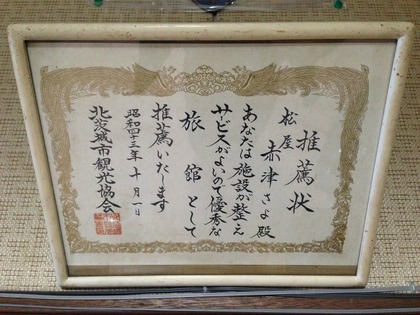 推薦状
松屋
赤津さよ殿
あなたは施設が整え
サービスがよいので優秀な
旅館として
推薦いたします
昭和四十三年十月一日
北茨城市観光協会